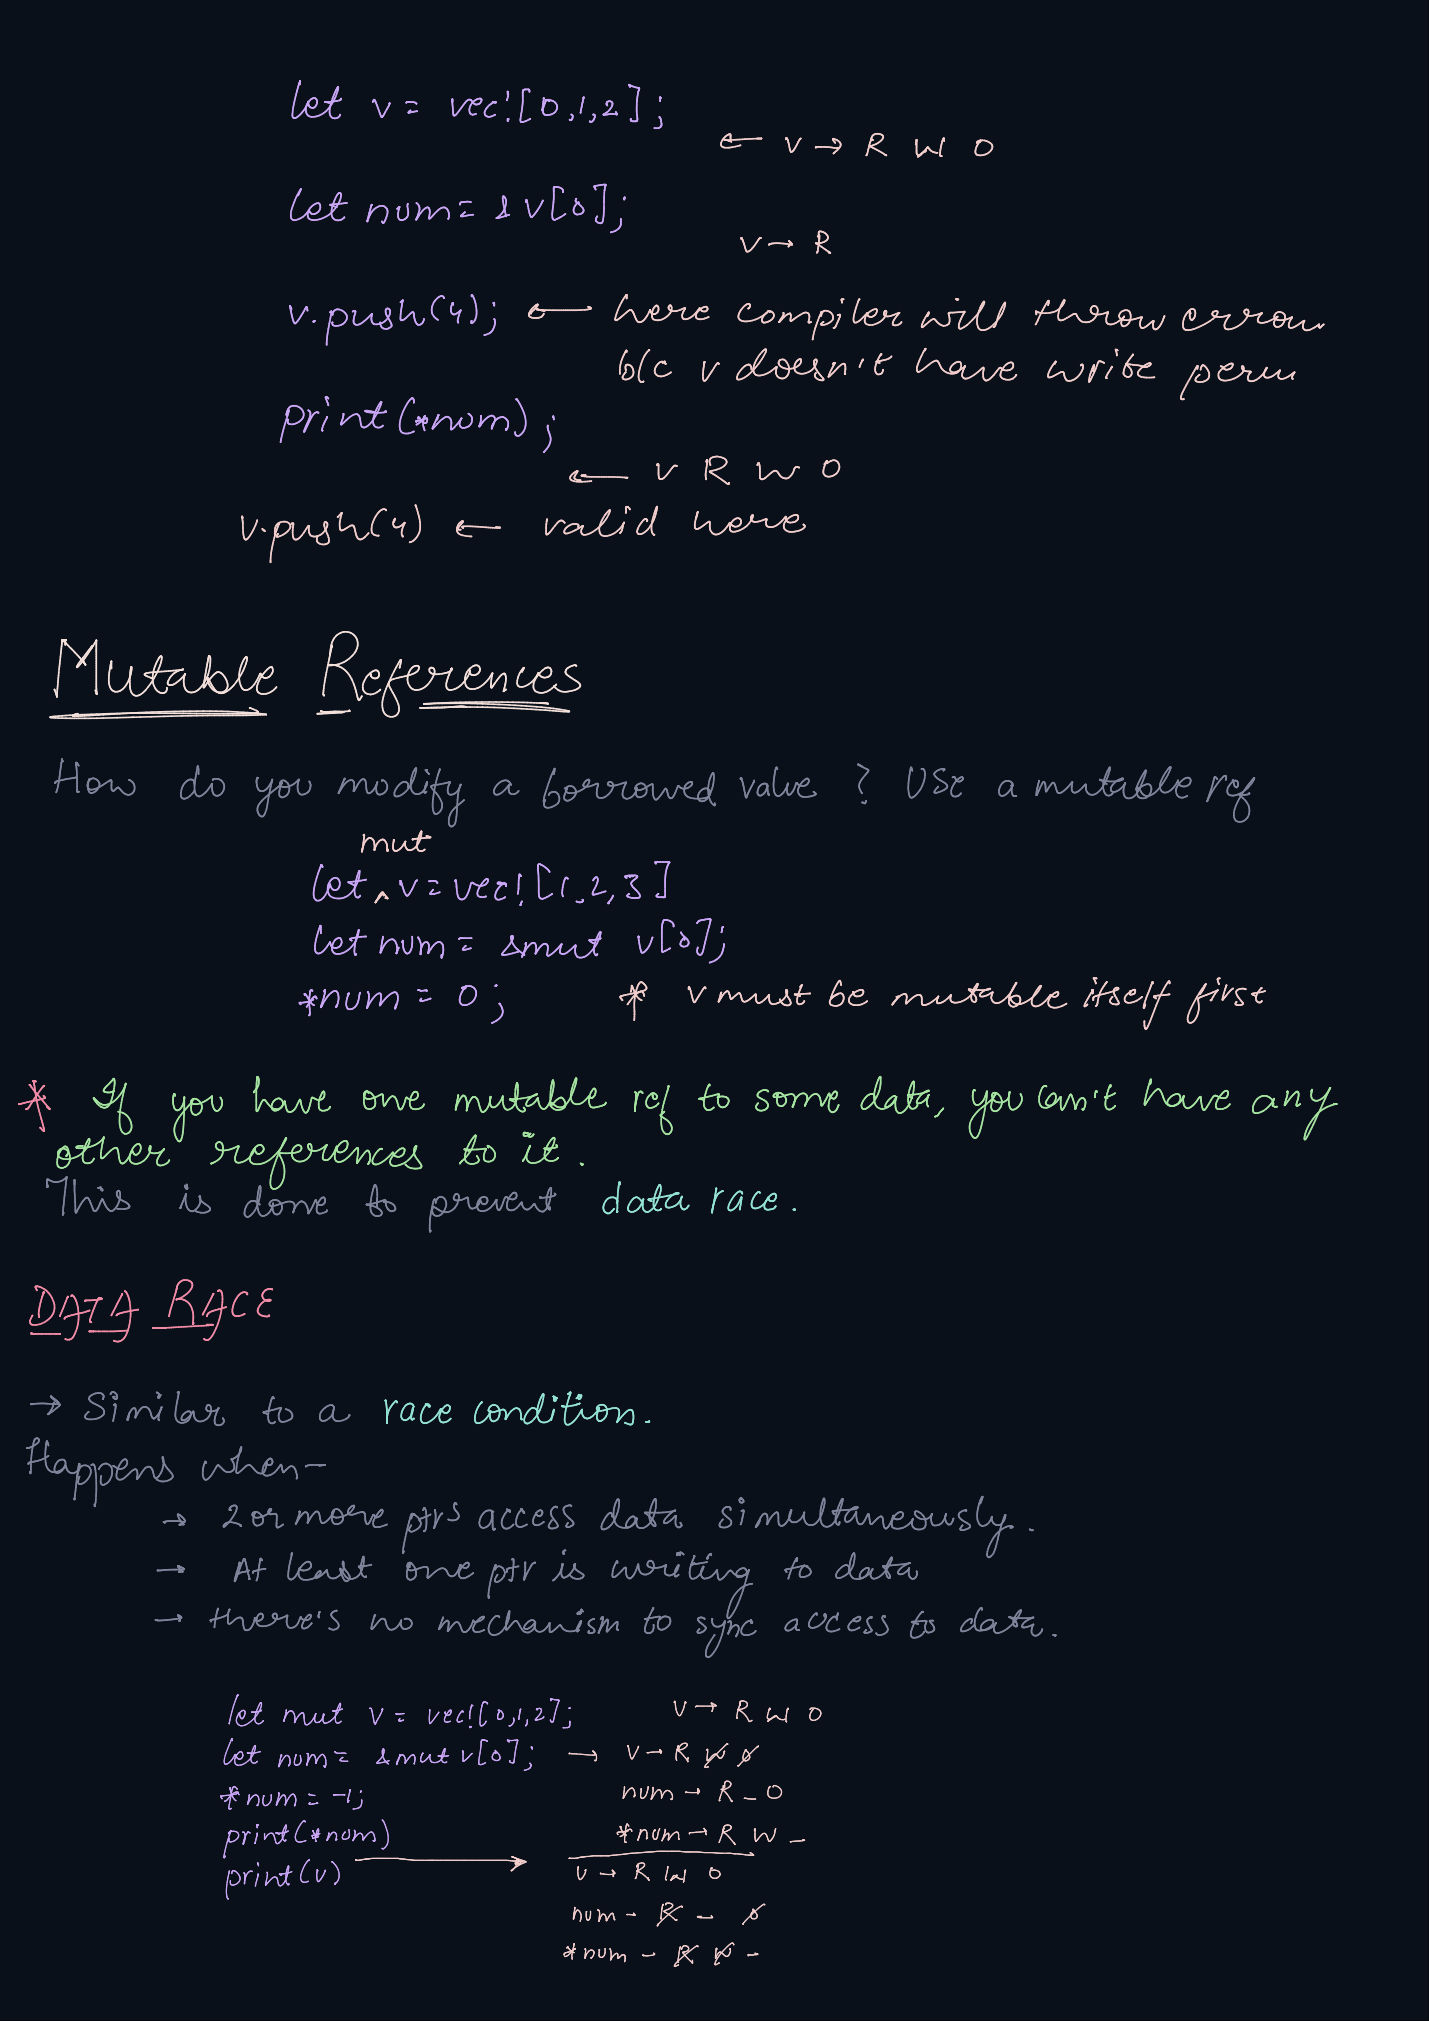 let v = vec![0,1,2];
← v → R W O
let num = &v[0];
v → R
v.push(4); ← here compiler will throw error
b/c v doesn't have write perm
print(*num);
← v R W O
v.push(4) ← valid here
Mutable References
How do you modify a borrowed value? Use a mutable ref
mut
let ^ v = vec![1,2,3]
let num = &mut v[0];
*num = 0; * v must be mutable itself first
* If you have one mutable ref to some data, you can't have any
other references to it.
This is done to prevent data race.
DATA RACE
→ Similar to a race condition.
Happens when-
→ 2 or more ptrs access data simultaneously.
→ At least one ptr is writing to data
→ there's no mechanism to sync access to data.
let mut v = vec![0,1,2]; v → R W O
let num = &mut v[0]; → v → R W O
*num = -1; num → R _ O
print(*num) *num → R W _
print(v) → v → R W O
num - R - O
*num - R W -